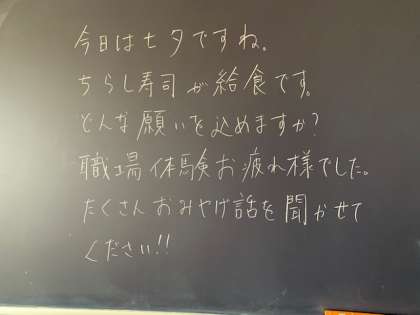 今日は七夕ですね。
ちらし寿司が給食です。
どんな願いを込めますか?
職場体験お疲れ様でした。
たくさんおみやげ話を聞かせて
ください!!